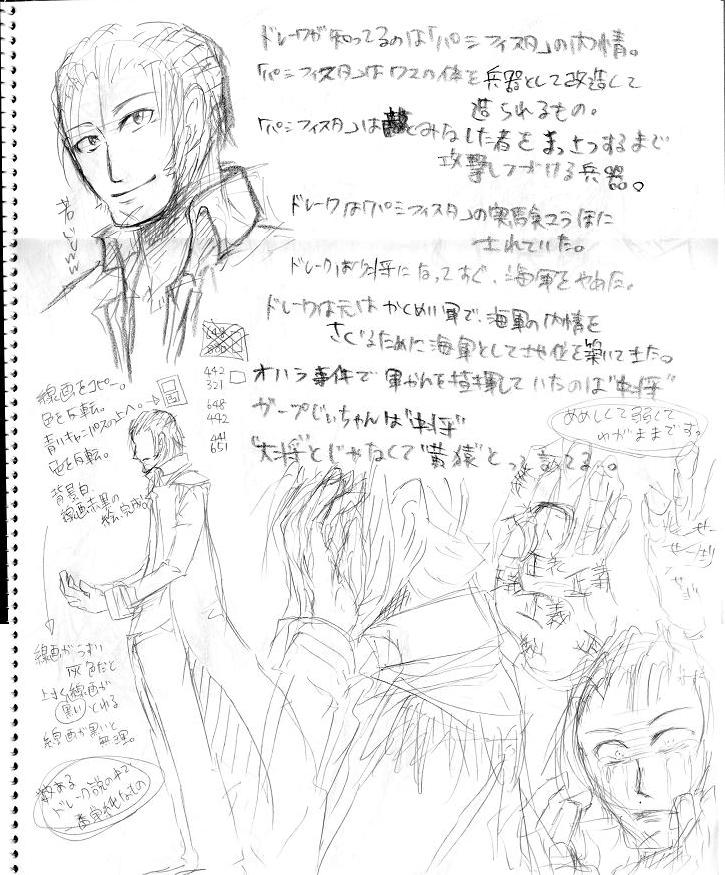 ドレークが知ってるのは「パシフィスタ」の内情。
「パシフィスタ」はクマの体を兵器として改造して
造られるもの。
「パシフィスタ」は敵とみなした者をまっさつするまで
攻撃しつづける兵器。
ドレークは「パシフィスタ」の実験
されていた。
ドレークは少将になってすぐ、海軍をやめた。
ドレークは元はかくめい軍で、海軍の内情を
さぐるために海軍として地位を築いてきた。
オハラ事件で軍かんを指揮していたのは"中将"
ガープじいちゃんは"中将"
"大将"とじゃなくて"黄猿"とって言ってる。
めめしくて弱くて
わがままです。
若いじゃんww
442
321
648
442
441
651
線画をコピー。
色を反転。
青いキャンバスの上へ。
色を反転。
背景白、
線画赤黒の
絵完成。
線画がうすい
灰色だと
上手く線画が
黒いとれる
線画が黒いと
無理。
数ある
ドレーク説の中で
正義
正義
正義